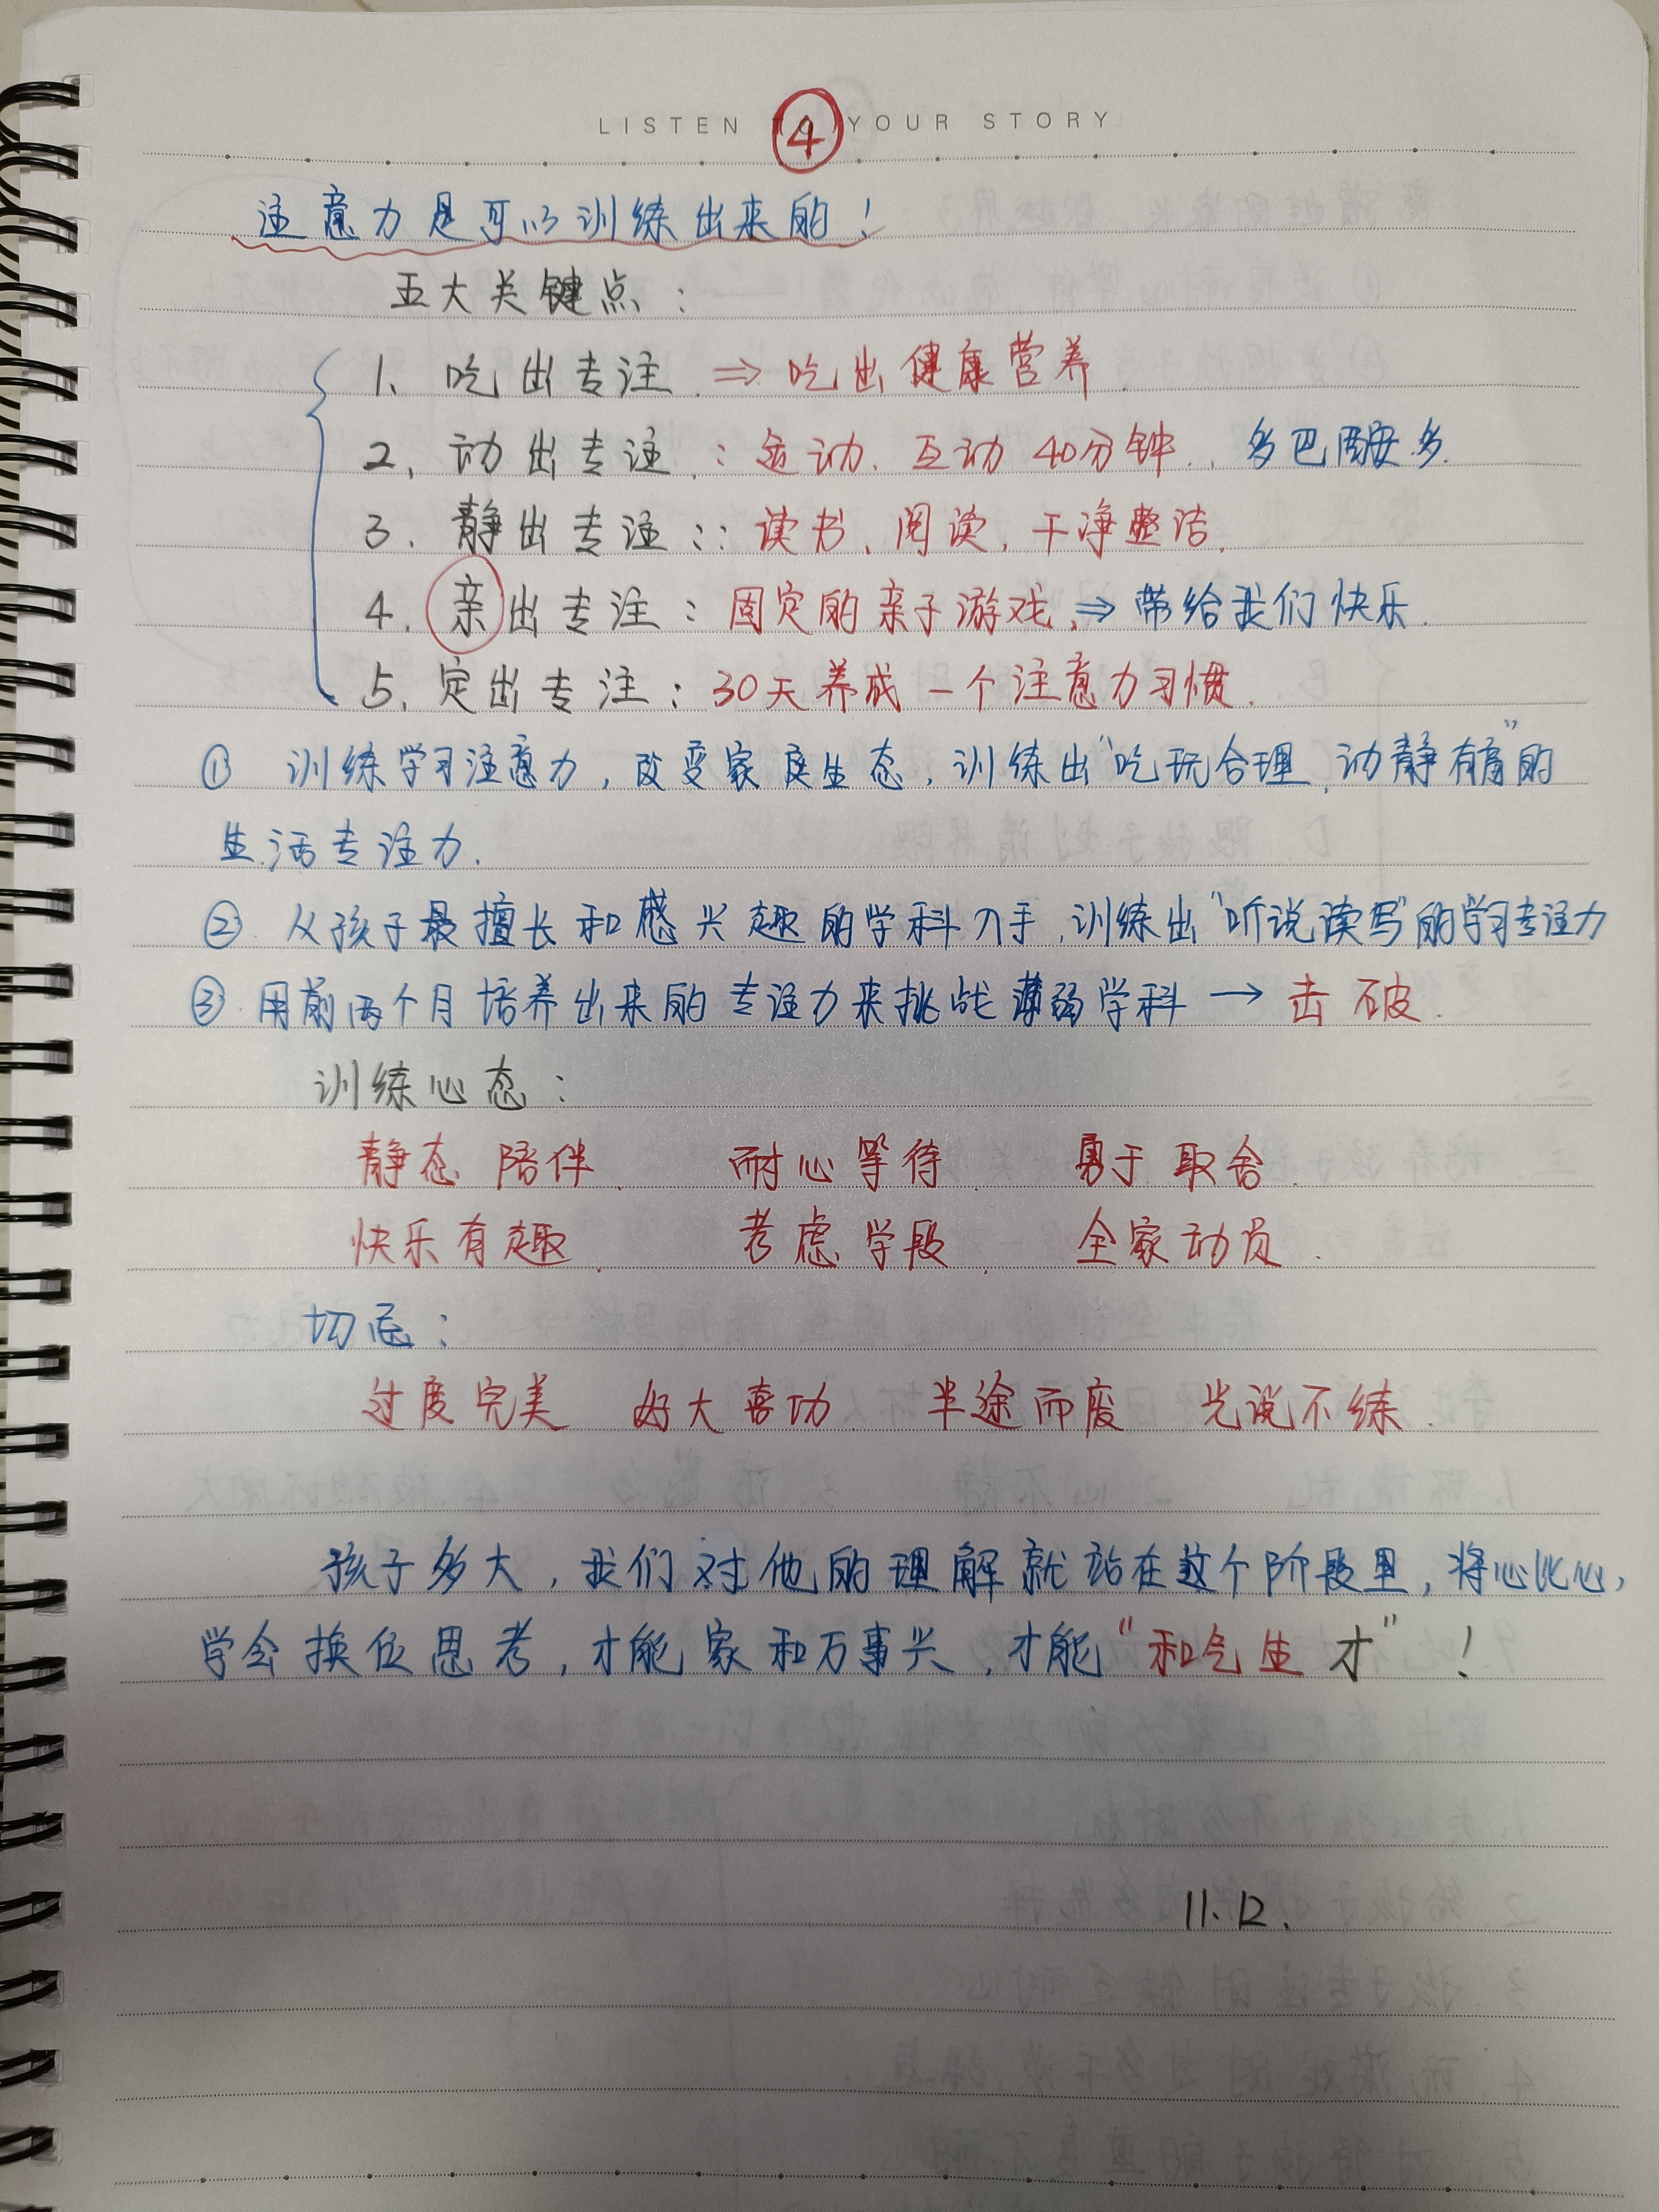 LISTEN TO YOUR STORY
④
注意力是可以训练出来的！
五大关键点：
1、吃出专注 ⇒ 吃出健康营养.
2、动出专注：运动、互动40分钟.，多巴胺多.
3. 静出专注：：读书、阅读，干净整洁.
4. 亲出专注：固定的亲子游戏，⇒带给我们快乐.
5、定出专注：30天养成一个注意力习惯.
① 训练学习注意力，改变家庭生态，训练出“吃玩合理，动静有度”的
生活专注力.
② 从孩子最擅长和感兴趣的学科入手，训练出“听说读写”的学习专注力
③ 用前两个月培养出来的专注力来挑战薄弱学科 → 击破.
训练心态：
静态陪伴. 耐心等待. 勇于取舍.
快乐有趣. 考虑学段. 全家动员.
切忌：
过度完美 好大喜功 半途而废 光说不练.
孩子多大，我们对他的理解就站在这个阶段里，将心比心，
学会换位思考，才能家和万事兴，才能“和气生才”！
11.12.